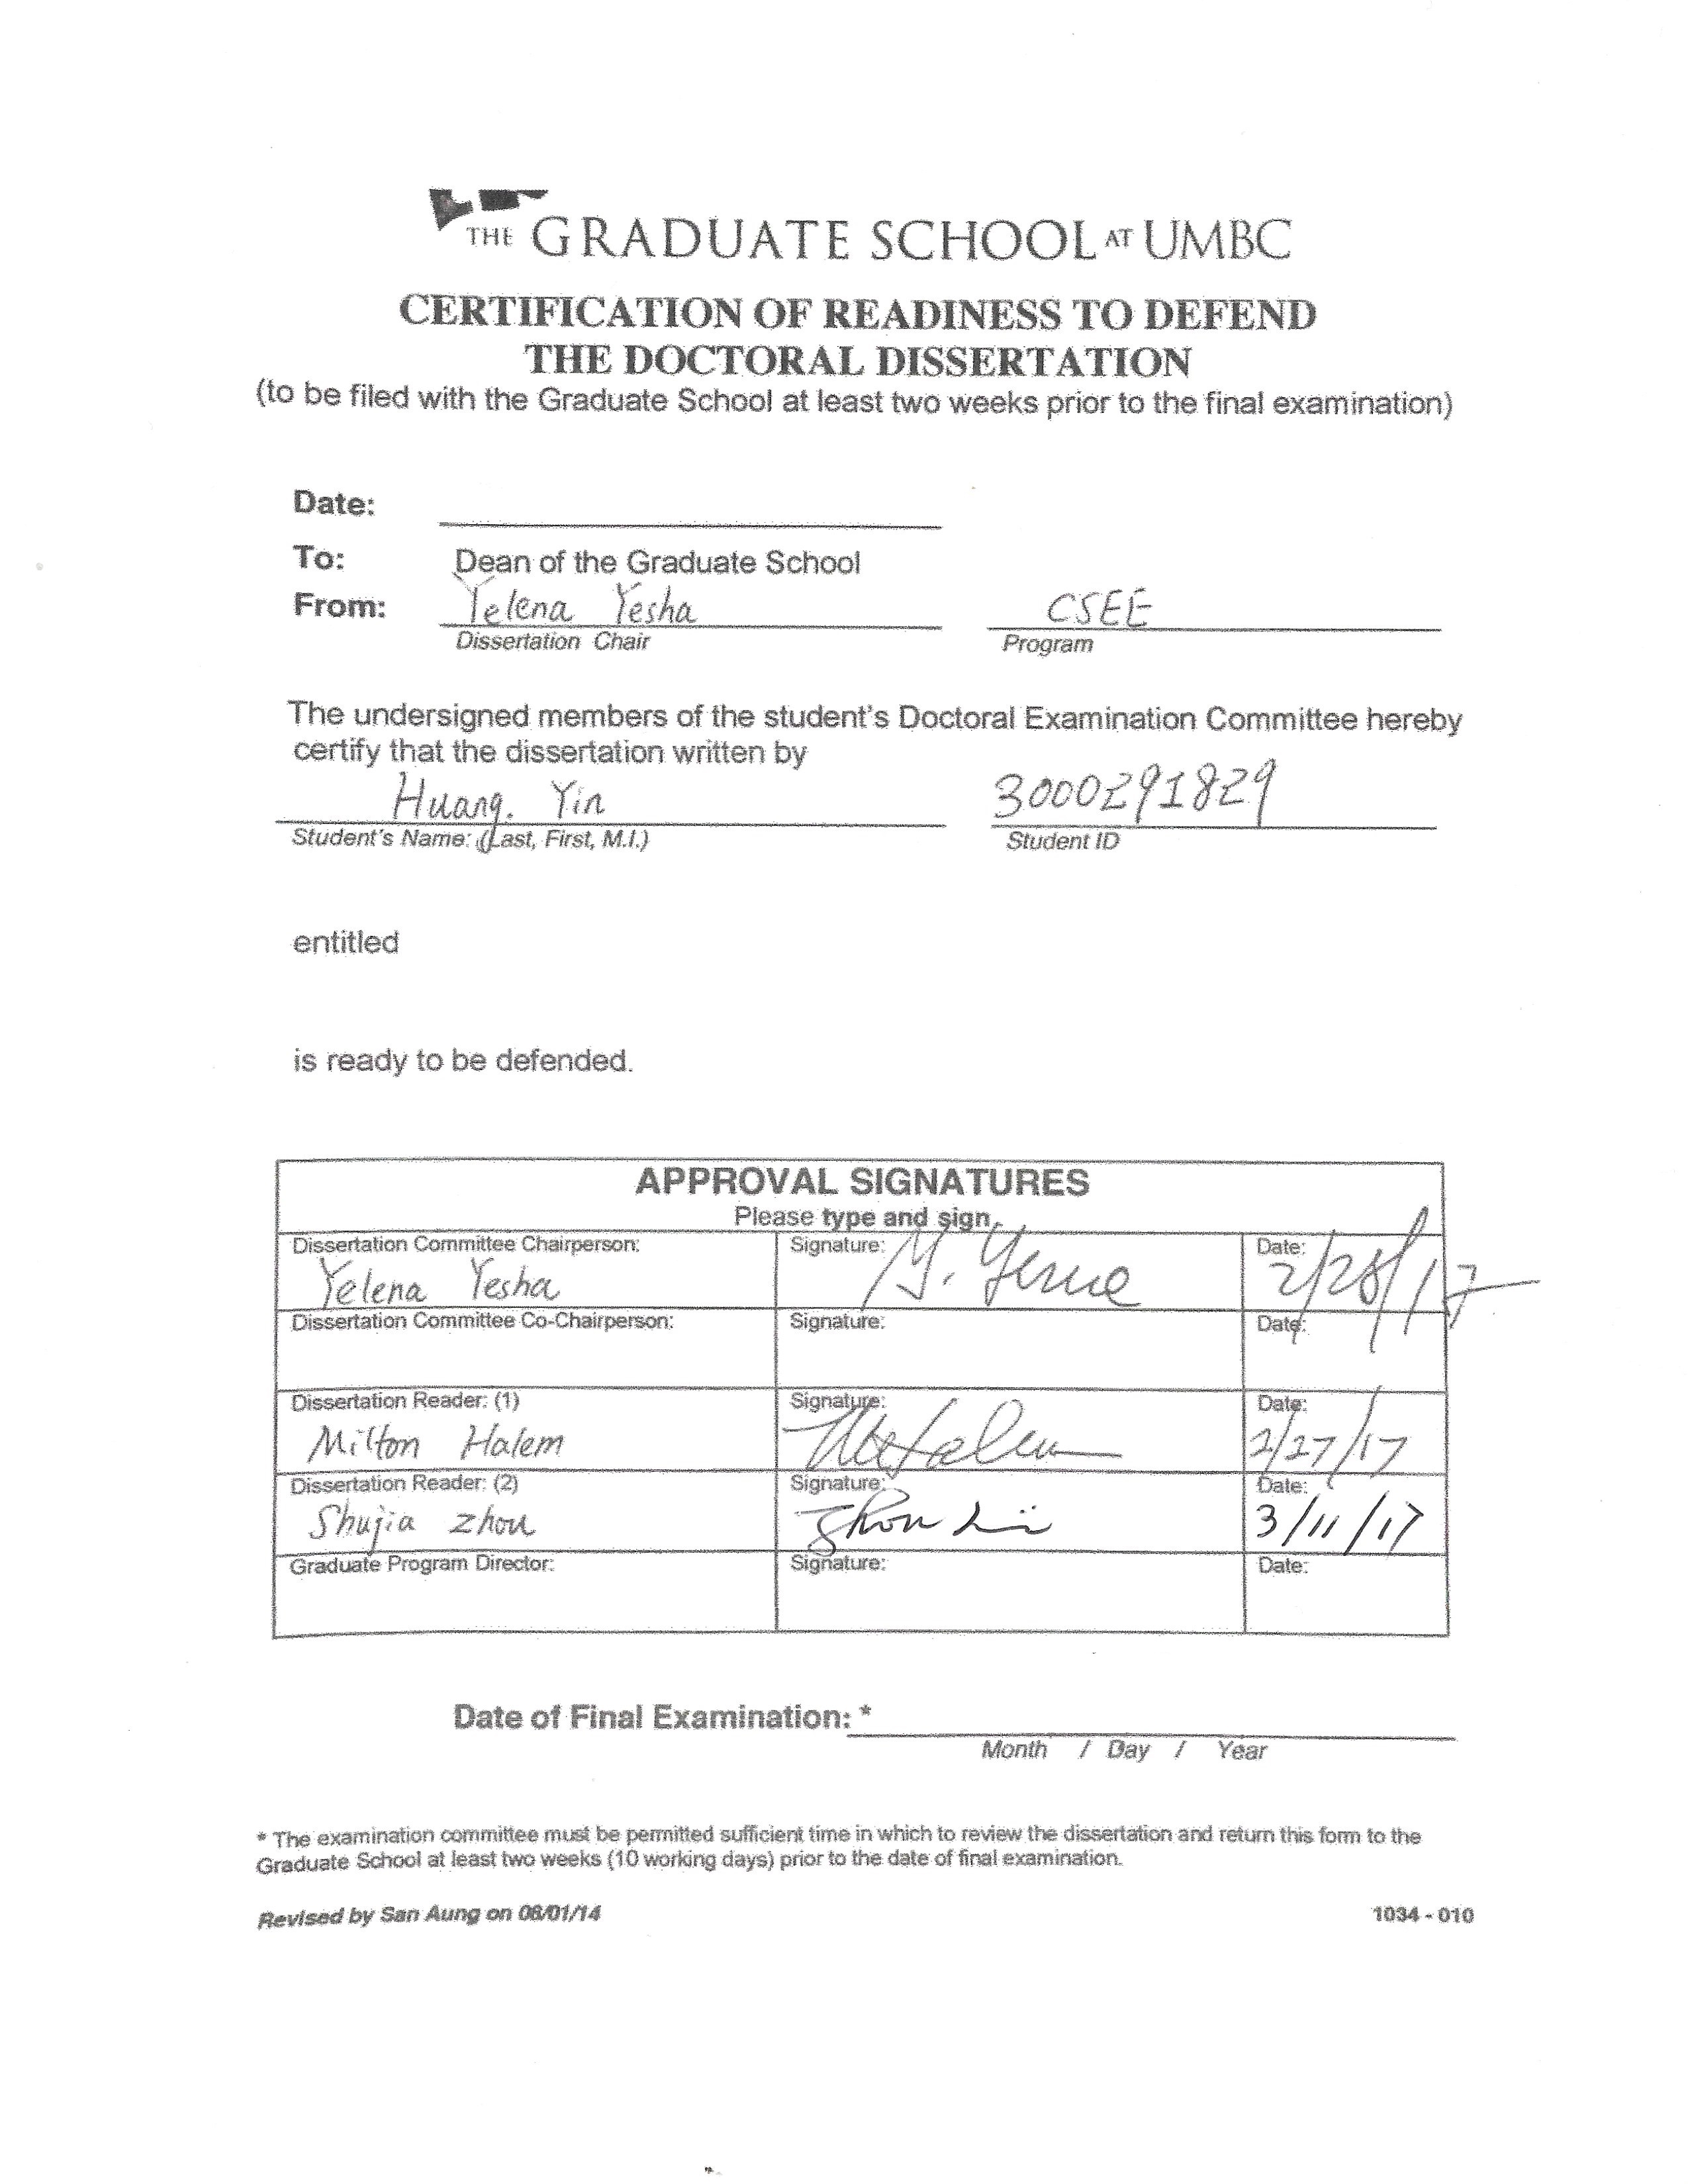 THE GRADUATE SCHOOL AT UMBC
CERTIFICATION OF READINESS TO DEFEND
THE DOCTORAL DISSERTATION
(to be filed with the Graduate School at least two weeks prior to the final examination)
Date:
To: Dean of the Graduate School
From: Yelena Yesha CSEE
Dissertation Chair Program
The undersigned members of the student's Doctoral Examination Committee hereby
certify that the dissertation written by
Huang. Yin 3000291829
Student's Name: (Last, First, M.I.) Student ID
entitled
is ready to be defended.
APPROVAL SIGNATURES
Please type and sign.
Dissertation Committee Chairperson: Signature: Date:
Yelena Yesha 2/28/17
Dissertation Committee Co-Chairperson: Signature: Date:
Dissertation Reader: (1) Signature: Date:
Milton Halem 2/27/17
Dissertation Reader: (2) Signature: Date:
Shujia Zhou 3/11/17
Graduate Program Director: Signature: Date:
Date of Final Examination: *
Month / Day / Year
* The examination committee must be permitted sufficient time in which to review the dissertation and return this form to the
Graduate School at least two weeks (10 working days) prior to the date of final examination.
Revised by San Aung on 08/01/14 1034 - 010